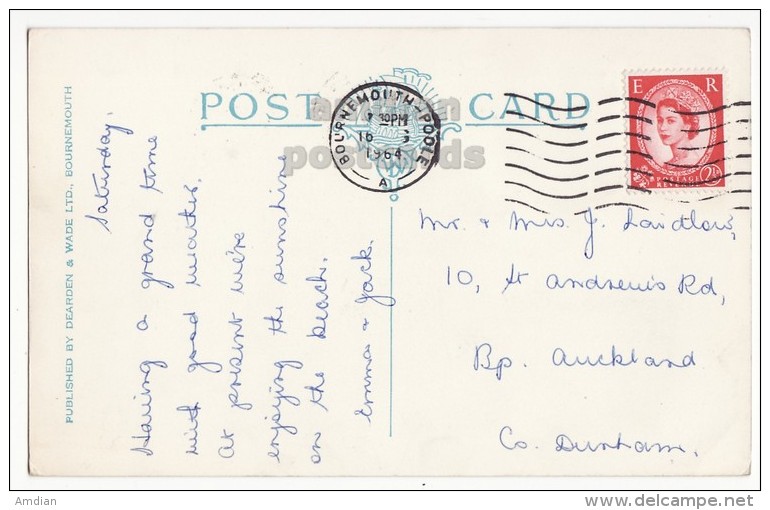 POST CARD
american
postcards
BOURNEMOUTH-POOLE
30PM
16
1964
A
E R
POSTAGE
REVENUE
2½ 2½
PUBLISHED BY DEARDEN & WADE LTD., BOURNEMOUTH
Saturday.
Having a grand time
with good weather.
At present we're
enjoying the sunshine
on the beach.
Emma & Jack.
Mr. & Mrs J. Laidlow,
10, St Andrew's Rd,
Bp. Auckland
Co. Durham.
Amdian
delcampe.net